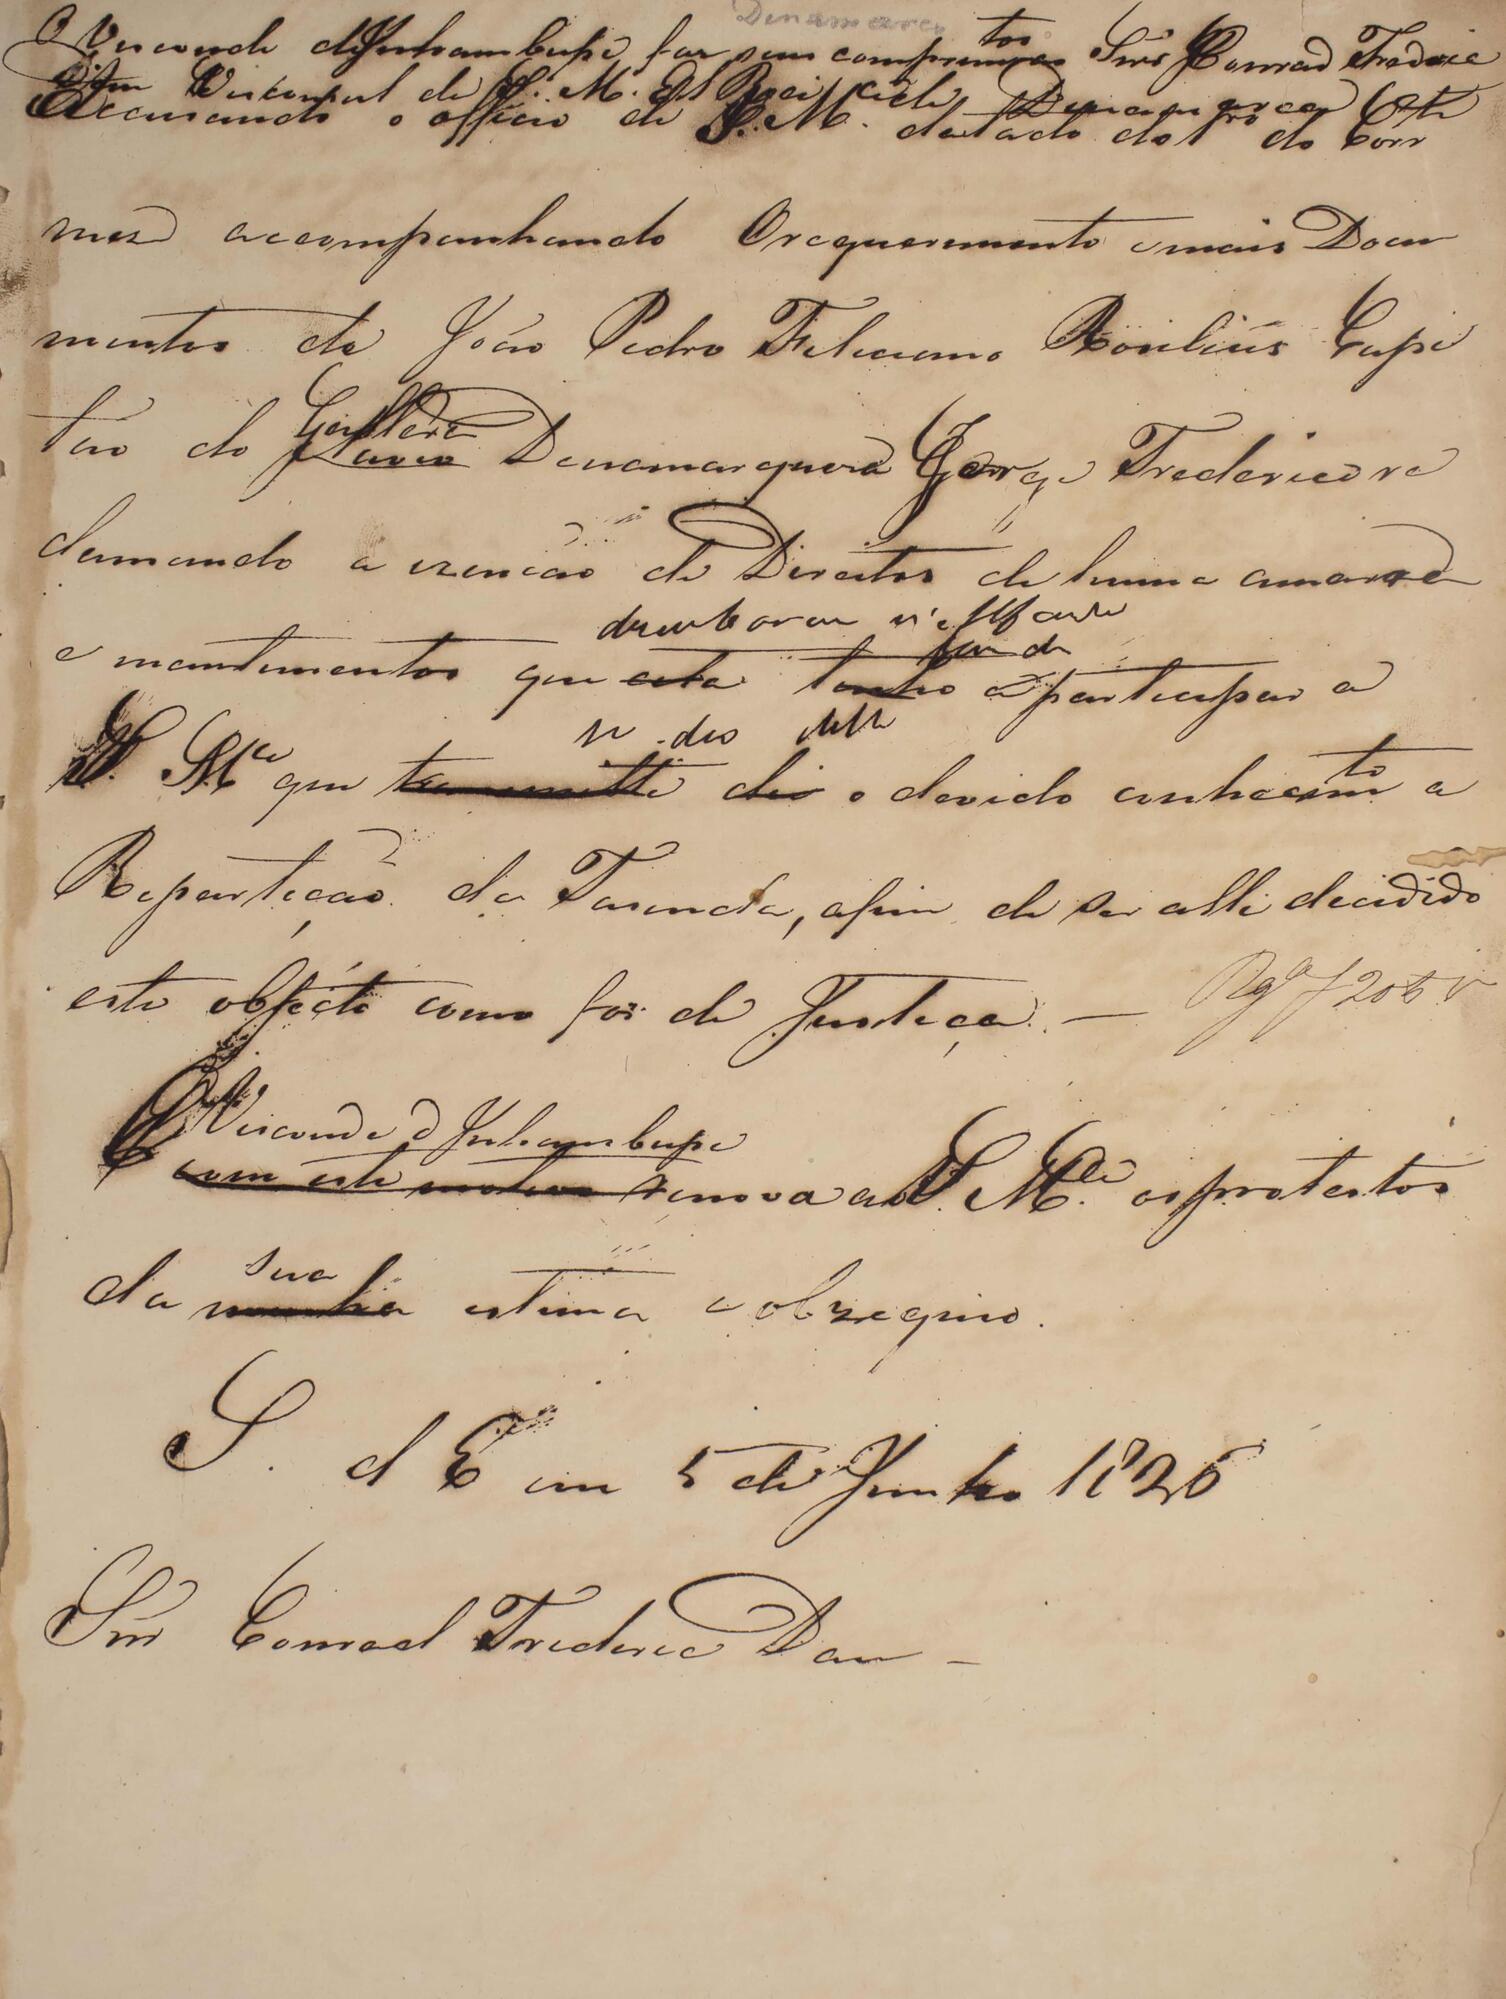 Dinamarca
O Visconde d'Inhambupe faz seus comprimentos Snr Conrad Frederic
Dan Viceconsul de S. M. El Rei de Dinamarca
Accusando o officio de S. M. datado do 1ro do Corr
mez accompanhando O requerimento e mais Docu
mentos de João Pedro Feliciano Capi
tão do Galera Danamarqueza George Frederico re
clamando a izenção de Direitos de huma amarra
e mantimentos que tenho a participar a
S. Mce que transmitte dio o devido conhecimto a
Repartição da Fazenda, afim de ser alli decidido
este objécto como for de Justiça. —
Visconde d Inhambupe
com este motivo renova a S. Mce os protestos
sua
da minha estima e obzequio.
S. d E em 5 de Junho 1826
Snr Conrad Frederic Dan —